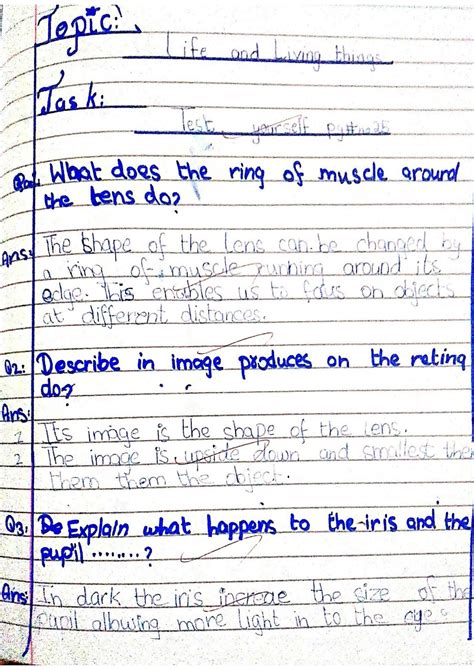 Topic:
Life and Living things
Task:
Test yourself pg#no25
What does the ring of muscle around
the lens do?
Ans: The shape of the lens can be changed by
a ring of muscle running around its
edge. This enables us to focus on objects
at different distances.
Q2: Describe in image produces on the reting
do?
Ans:
1 Its image is the shape of the lens.
2 The image is upside down and smallest then
them them the object.
Q3: De Explain what happens to the iris and the
pupil ........?
Ans: In dark the iris increae the size of the
pupil allowing more light in to the eye.